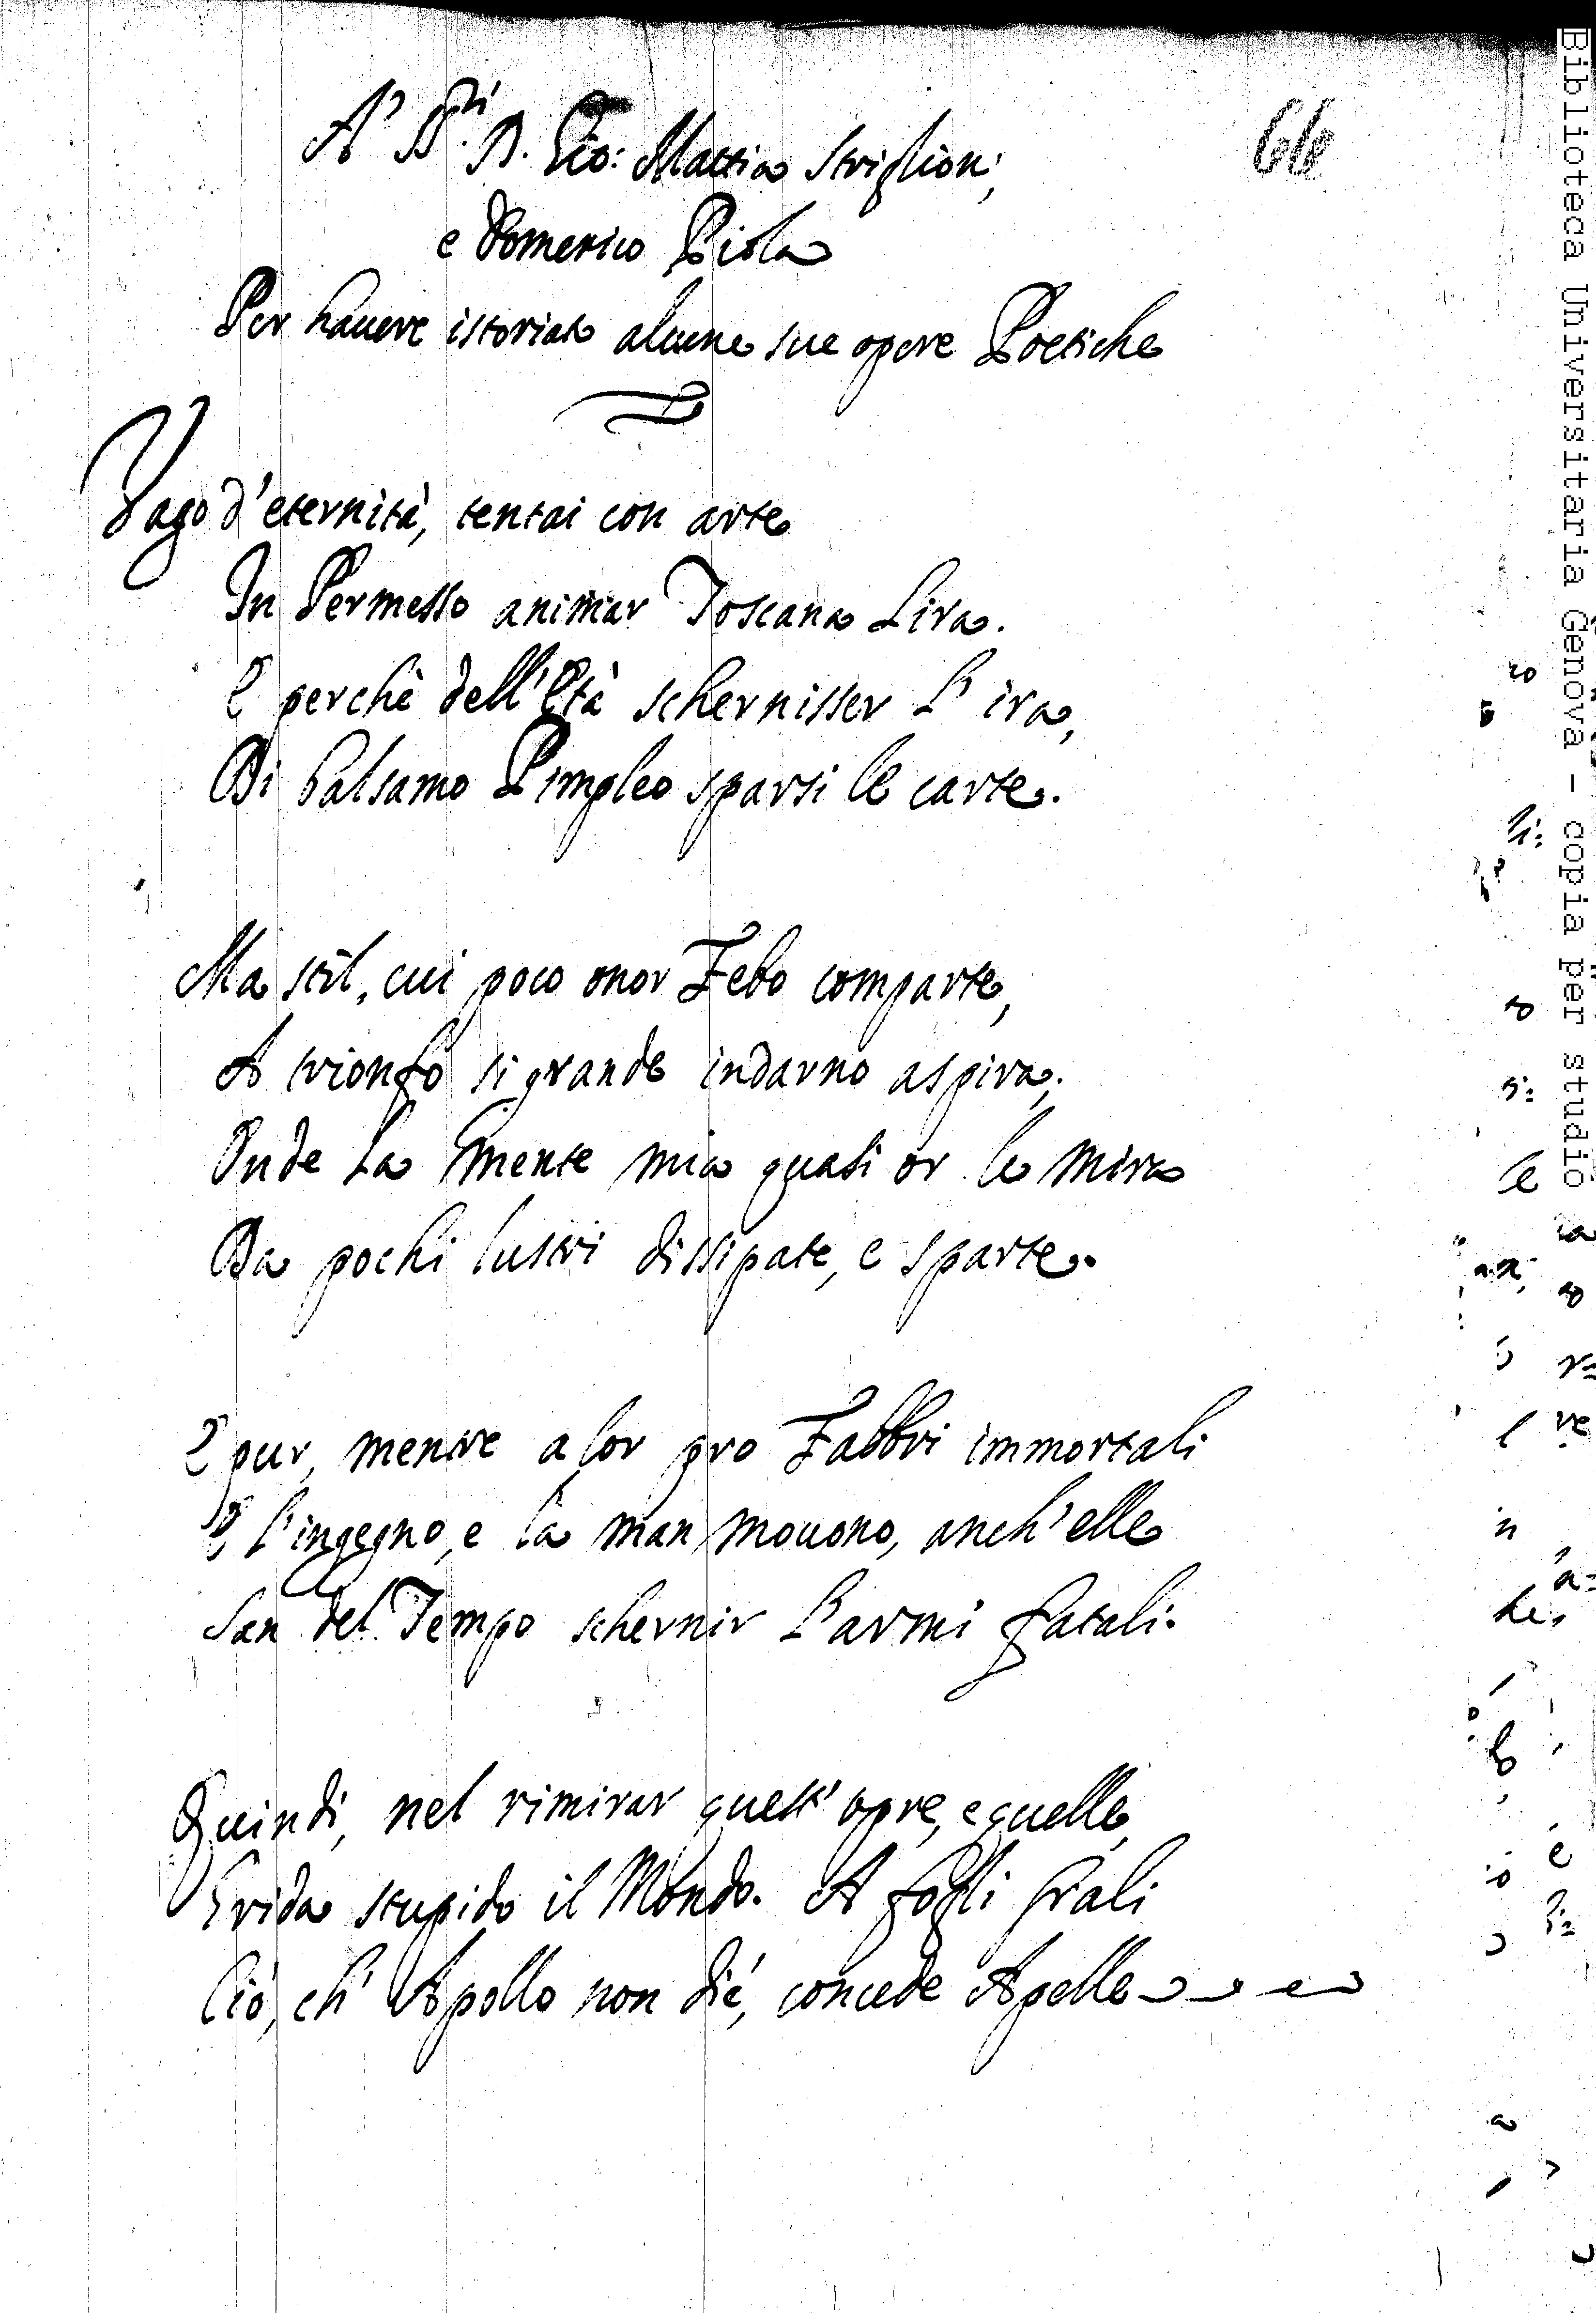 A' SS.ri D. Gio: Mattia Striglioni,
e Domenico Piola
Per hauere istoriato alcune sue opere Poetiche
Vago d'eternità, tentai con arte
In Permesso animar Toscana Lira.
E perchè dell'Età schernisser l'ira,
Di balsamo Pimpleo sparsi le carte.
Ma stil, cui poco onor Febo comparte,
A trionfo sì grande indarno aspira;
Onde la mente mia quasi or le mira
Da pochi lustri dissipate, e sparte.
E pur, mentre a lor pro Fabbri immortali
E l'ingegno, e la man mouono, anch'elle
San del Tempo schernir l'armi fatali.
Quindi, nel rimirar quest'opre, e quelle,
Grida stupido il Mondo. A fogli frali
Ciò, ch'Apollo non diè, concede Apelle
Biblioteca Universitaria Genova - copia per studio